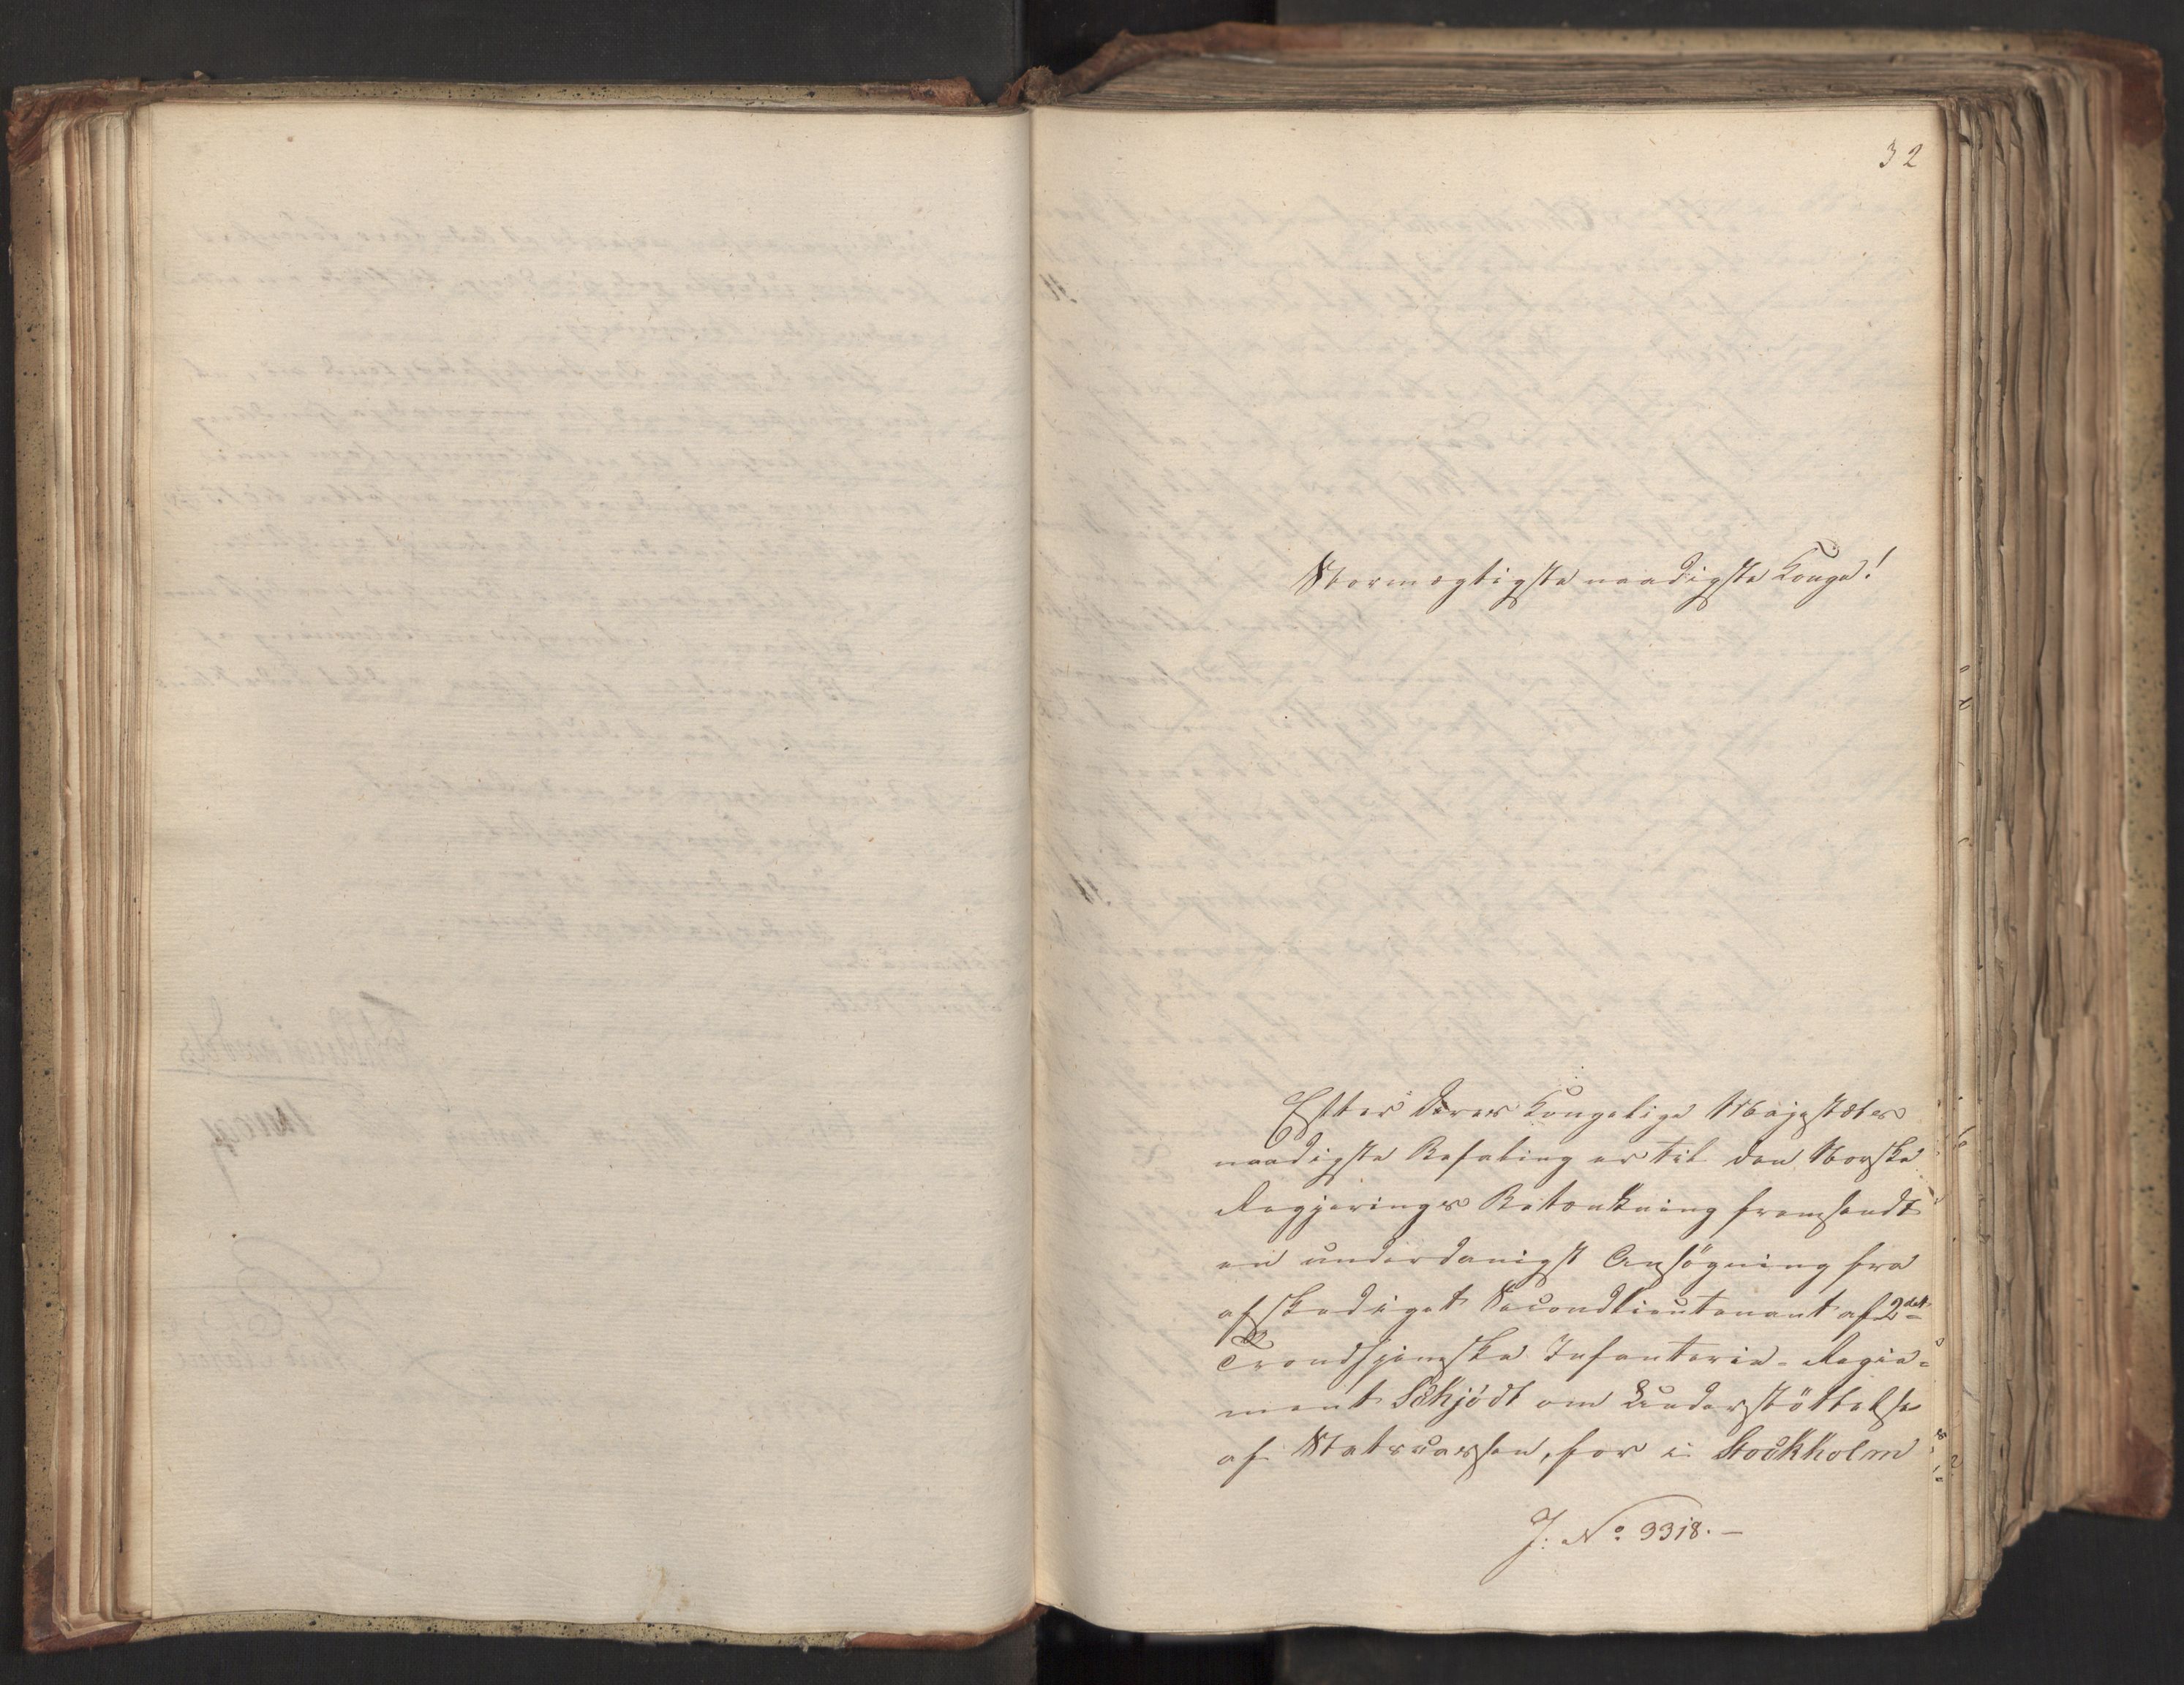 32
Stormægtigste naadigste Konge!
Efter Deres Kongelige Majestæts
naadigste Befaling er til den Norske
Regjerings Betænkning fremsendt
en underdanigst Ansögning fra
afskediget Secondlieutenant af 2det
Trondhjemske Infanterie-Regie-
ment Schjödt om Understöttelse
af Statscassen, for i Stockholm
J. No 3318.-